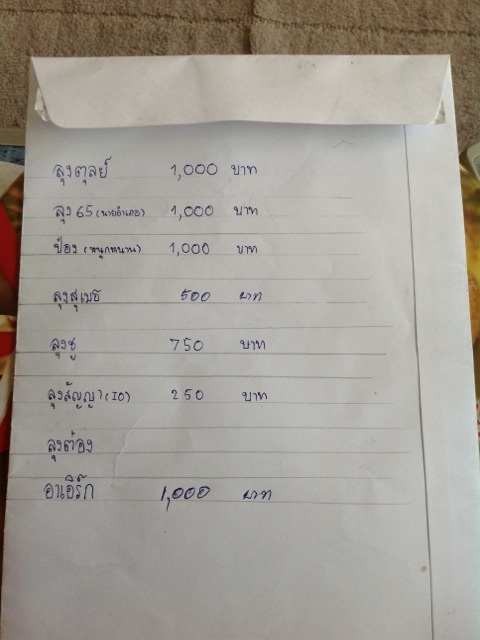 ลุงตุลย์ 1,000 บาท
ลุง 65 (นายอำเภอ) 1,000 บาท
ป๋อง (หนุกหนาน) 1,000 บาท
ลุงสุเมธ 500 บาท
ลุงชู 750 บาท
ลุงสัญญา (IO) 250 บาท
ลุงต๋อง
อนอิรัก 1,000 บาท